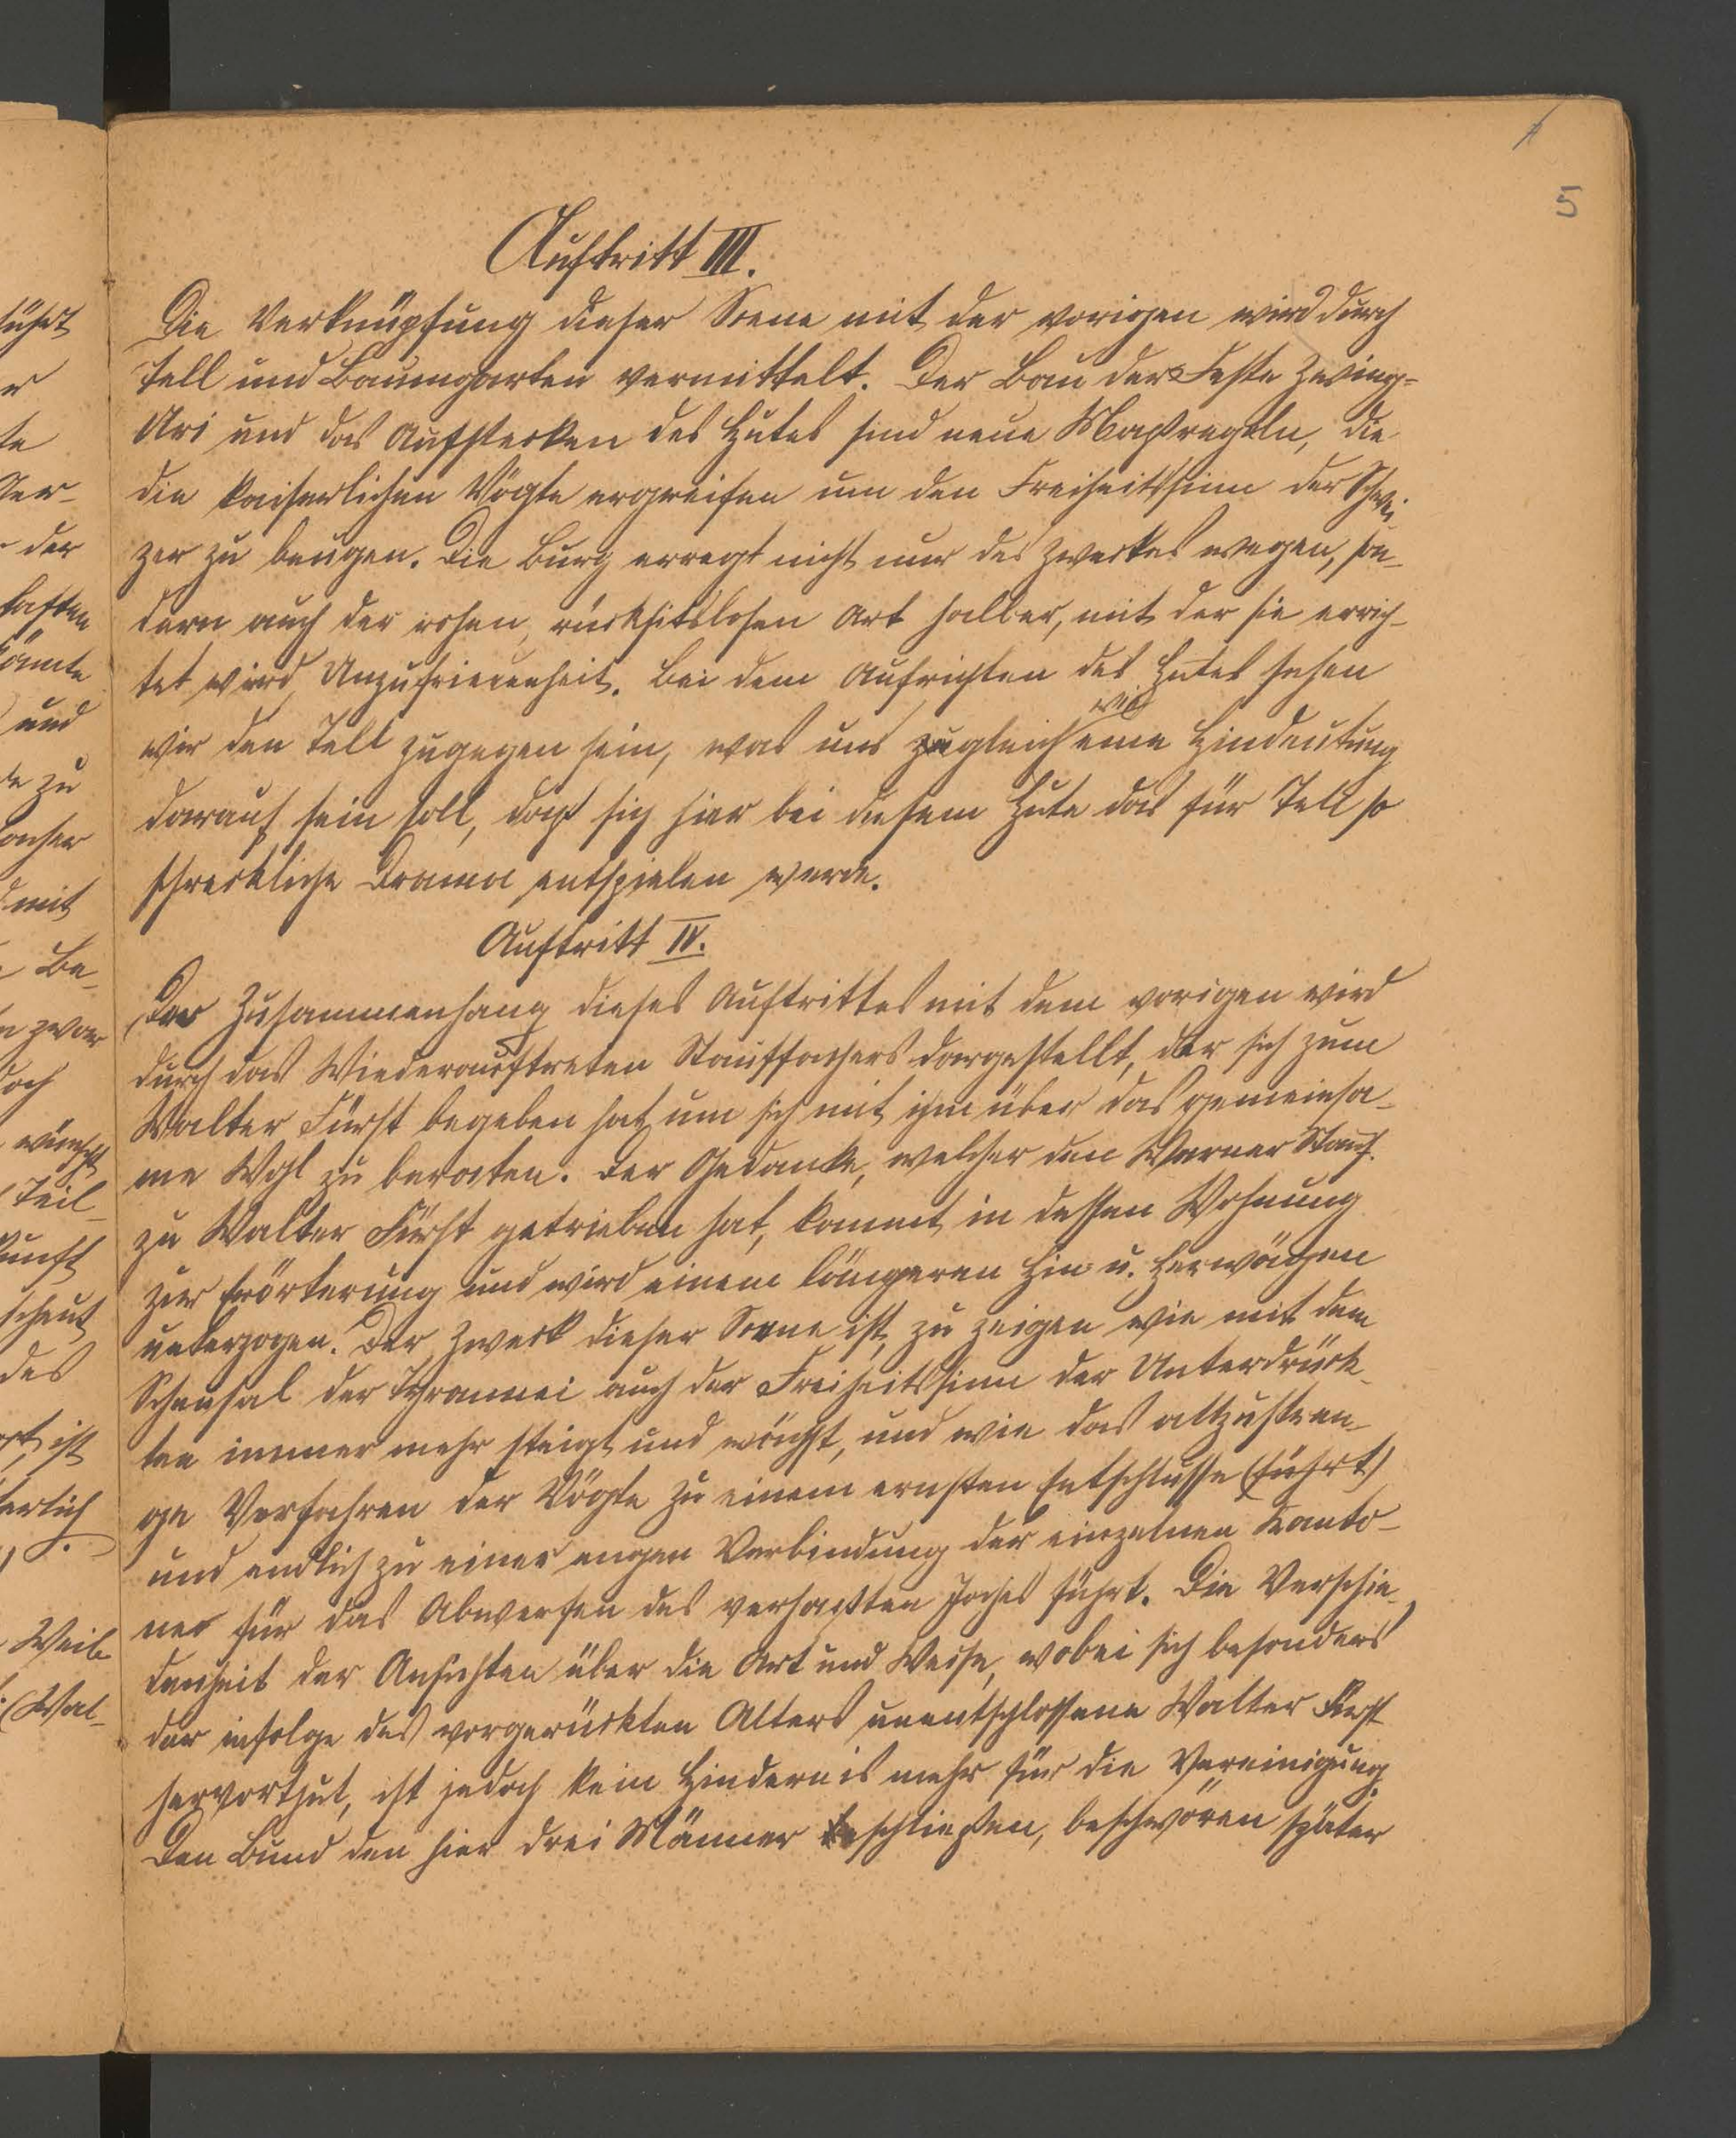 5
Auftritt III.
Die Verknüpfung dieser Scene mit der vorigen wird durch
Tell und Baumgarten vermittelt. Der Bau der Feste Zwing-
Uri und das Aufstecken des Hutes sind neue Maßregeln, die
die kaiserlichen Vögte ergreifen um den Freiheitssinn der Schwei
zer zu beugen. Die Burg erregt nicht nur des Zweckes wegen, son-
dern auch der rohen, rücksichtslosen Art halber, mit der sie errich-
tet wird, Unzufriedenheit. Bei dem Aufrichten des Hutes sehen
wir den Tell zugegen sein, was uns zugleich eine Hindeutung
darauf sein soll, daß sich hier bei diesem Hute das für Tell so
schreckliche Drama entspielen werde.
Auftritt IV.
Der Zusammenhang dieses Auftrittes mit dem vorigen wird
durch das Wiederauftreten Stauffachers dargestellt, der sich zum
Walter Fürst begeben hat um sich mit ihm über das gemeinsa-
me Wohl zu beraten. Der Gedanke, welcher den Werner Stauf.
zu Walter Fürst getrieben hat, kommt in dessen Wohnung
zur Erörterung und wird einem längeren Hin u. Herwägen
unterzogen. Der Zweck dieser Scene ist, zu zeigen wie mit dem
Scheusal der Tyrannei auch der Freiheitssinn der Unterdrück-
ten immer mehr steigt und wächst, und wie das allzustren-
ge Verfahren der Vögte zu einem ernsten Entschlusse (führt)
und endlich zu einer engen Verbindung der einzelnen Kanto-
ner für das Abwerfen des verhaßten Joches führt. Die Verschie-
denheit der Ansichten über die Art und Weise, wobei sich besonders
der infolge des vorgerückten Alters unentschlossene Walter Fürst
hervorthut, ist jedoch kein Hindernis mehr für die Vereinigung.
Den Bund den hier drei Männer beschließen, beschwören später